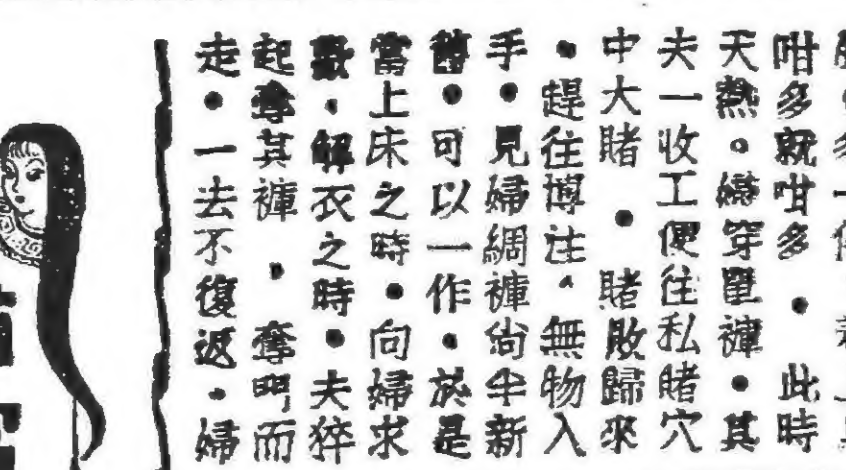 咁多就咁多。此時
天熱。婦穿單褲。其
夫一收工便往私賭穴
中大賭。賭敗歸來
。趕往博注。無物入
手。見婦綢褲尙半新
舊。可以一作。於是
當上床之時。向婦求
歡，解衣之時。夫猝
起奪其褲。奪門而
走。一去不復返。婦